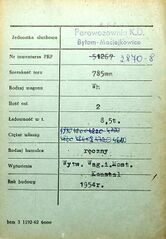 Jednostka służbowa
Parowozownia K.D.
Bytom-Maciejkowice
Nr inwentarza PKP 51269 2870-8
Szerokość toru 785mm
Rodzaj wagonu Wh
Ilość osi 2
Ładowność w t. 8,5t.
Ciężar własny 4220 4100
Rodzaj hamulca ręczny
Wytwórnia Wytw. Wag.i Most.
Konstal
Rok budowy 1954r.